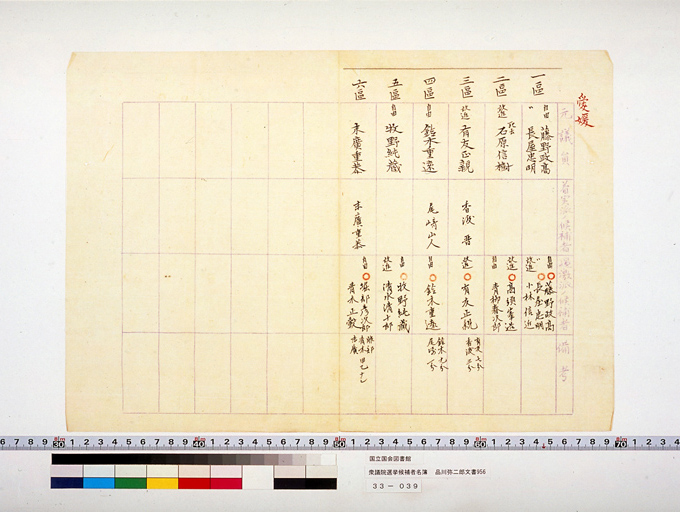 愛媛
元議員
候補者
候補者
備考
一區
自由 藤野政高
〃 長屋忠明
二區
改進 死去 石原信樹
三區
改進 有友正親
四區
自由 鈴木重遠
五區
自由 牧野純蔵
六區
末廣重恭
香渡晋
尾崎山人
末廣重恭
自由 藤野政高
〃 長屋忠明
改進 小林信近
改進 高須峯造
自由 青柳春次郎
改進 有友正親
自由 鈴木重遠
自由 牧野純蔵
改進 清水清十郎
自由 堀部彦次郎
青木正
有友 七分
香渡 三分
鈴木 九分
尾崎 一分
国立国会図書館
衆議院選挙候補者名簿 品川弥二郎文書956
33-039